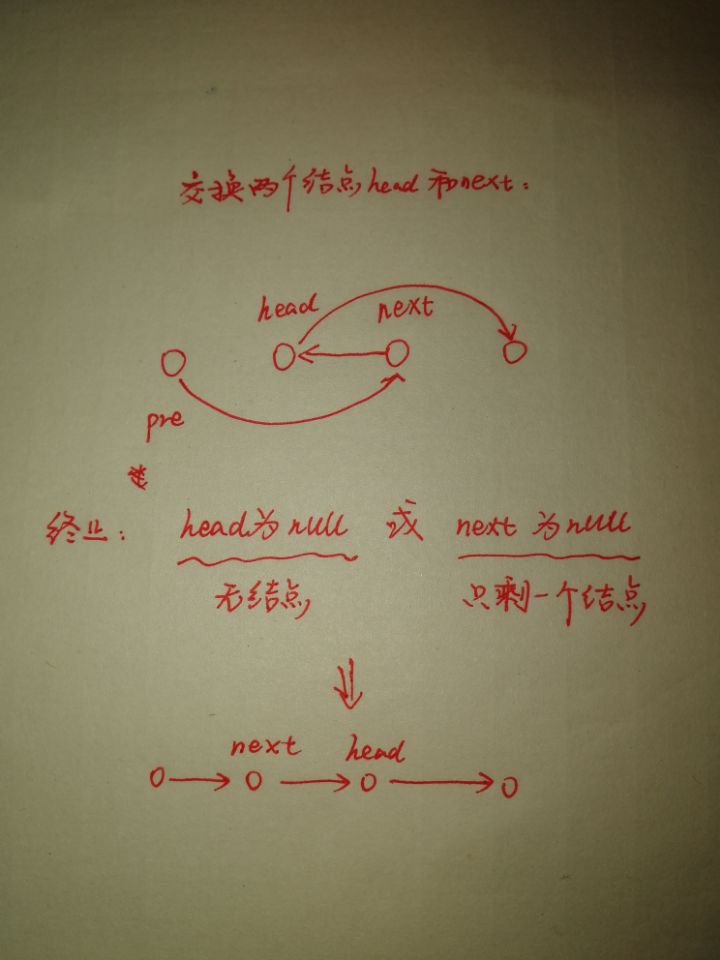 交换两个结点head和next：
head next
pre
终止： head为null 或 next为null
无结点 只剩一个结点
next head